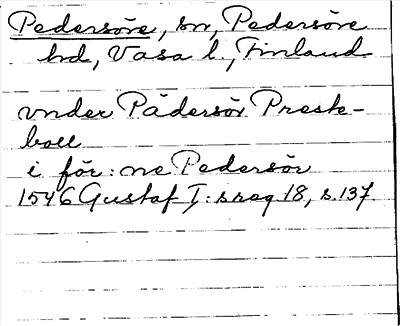 Pedersöre, sn, Pedersöre
hd, Vasa l., Finland
vnder Pädersör Prest-
boll
i för: ne Pedersör
1546 Gustaf I: s reg. 18, s. 137.